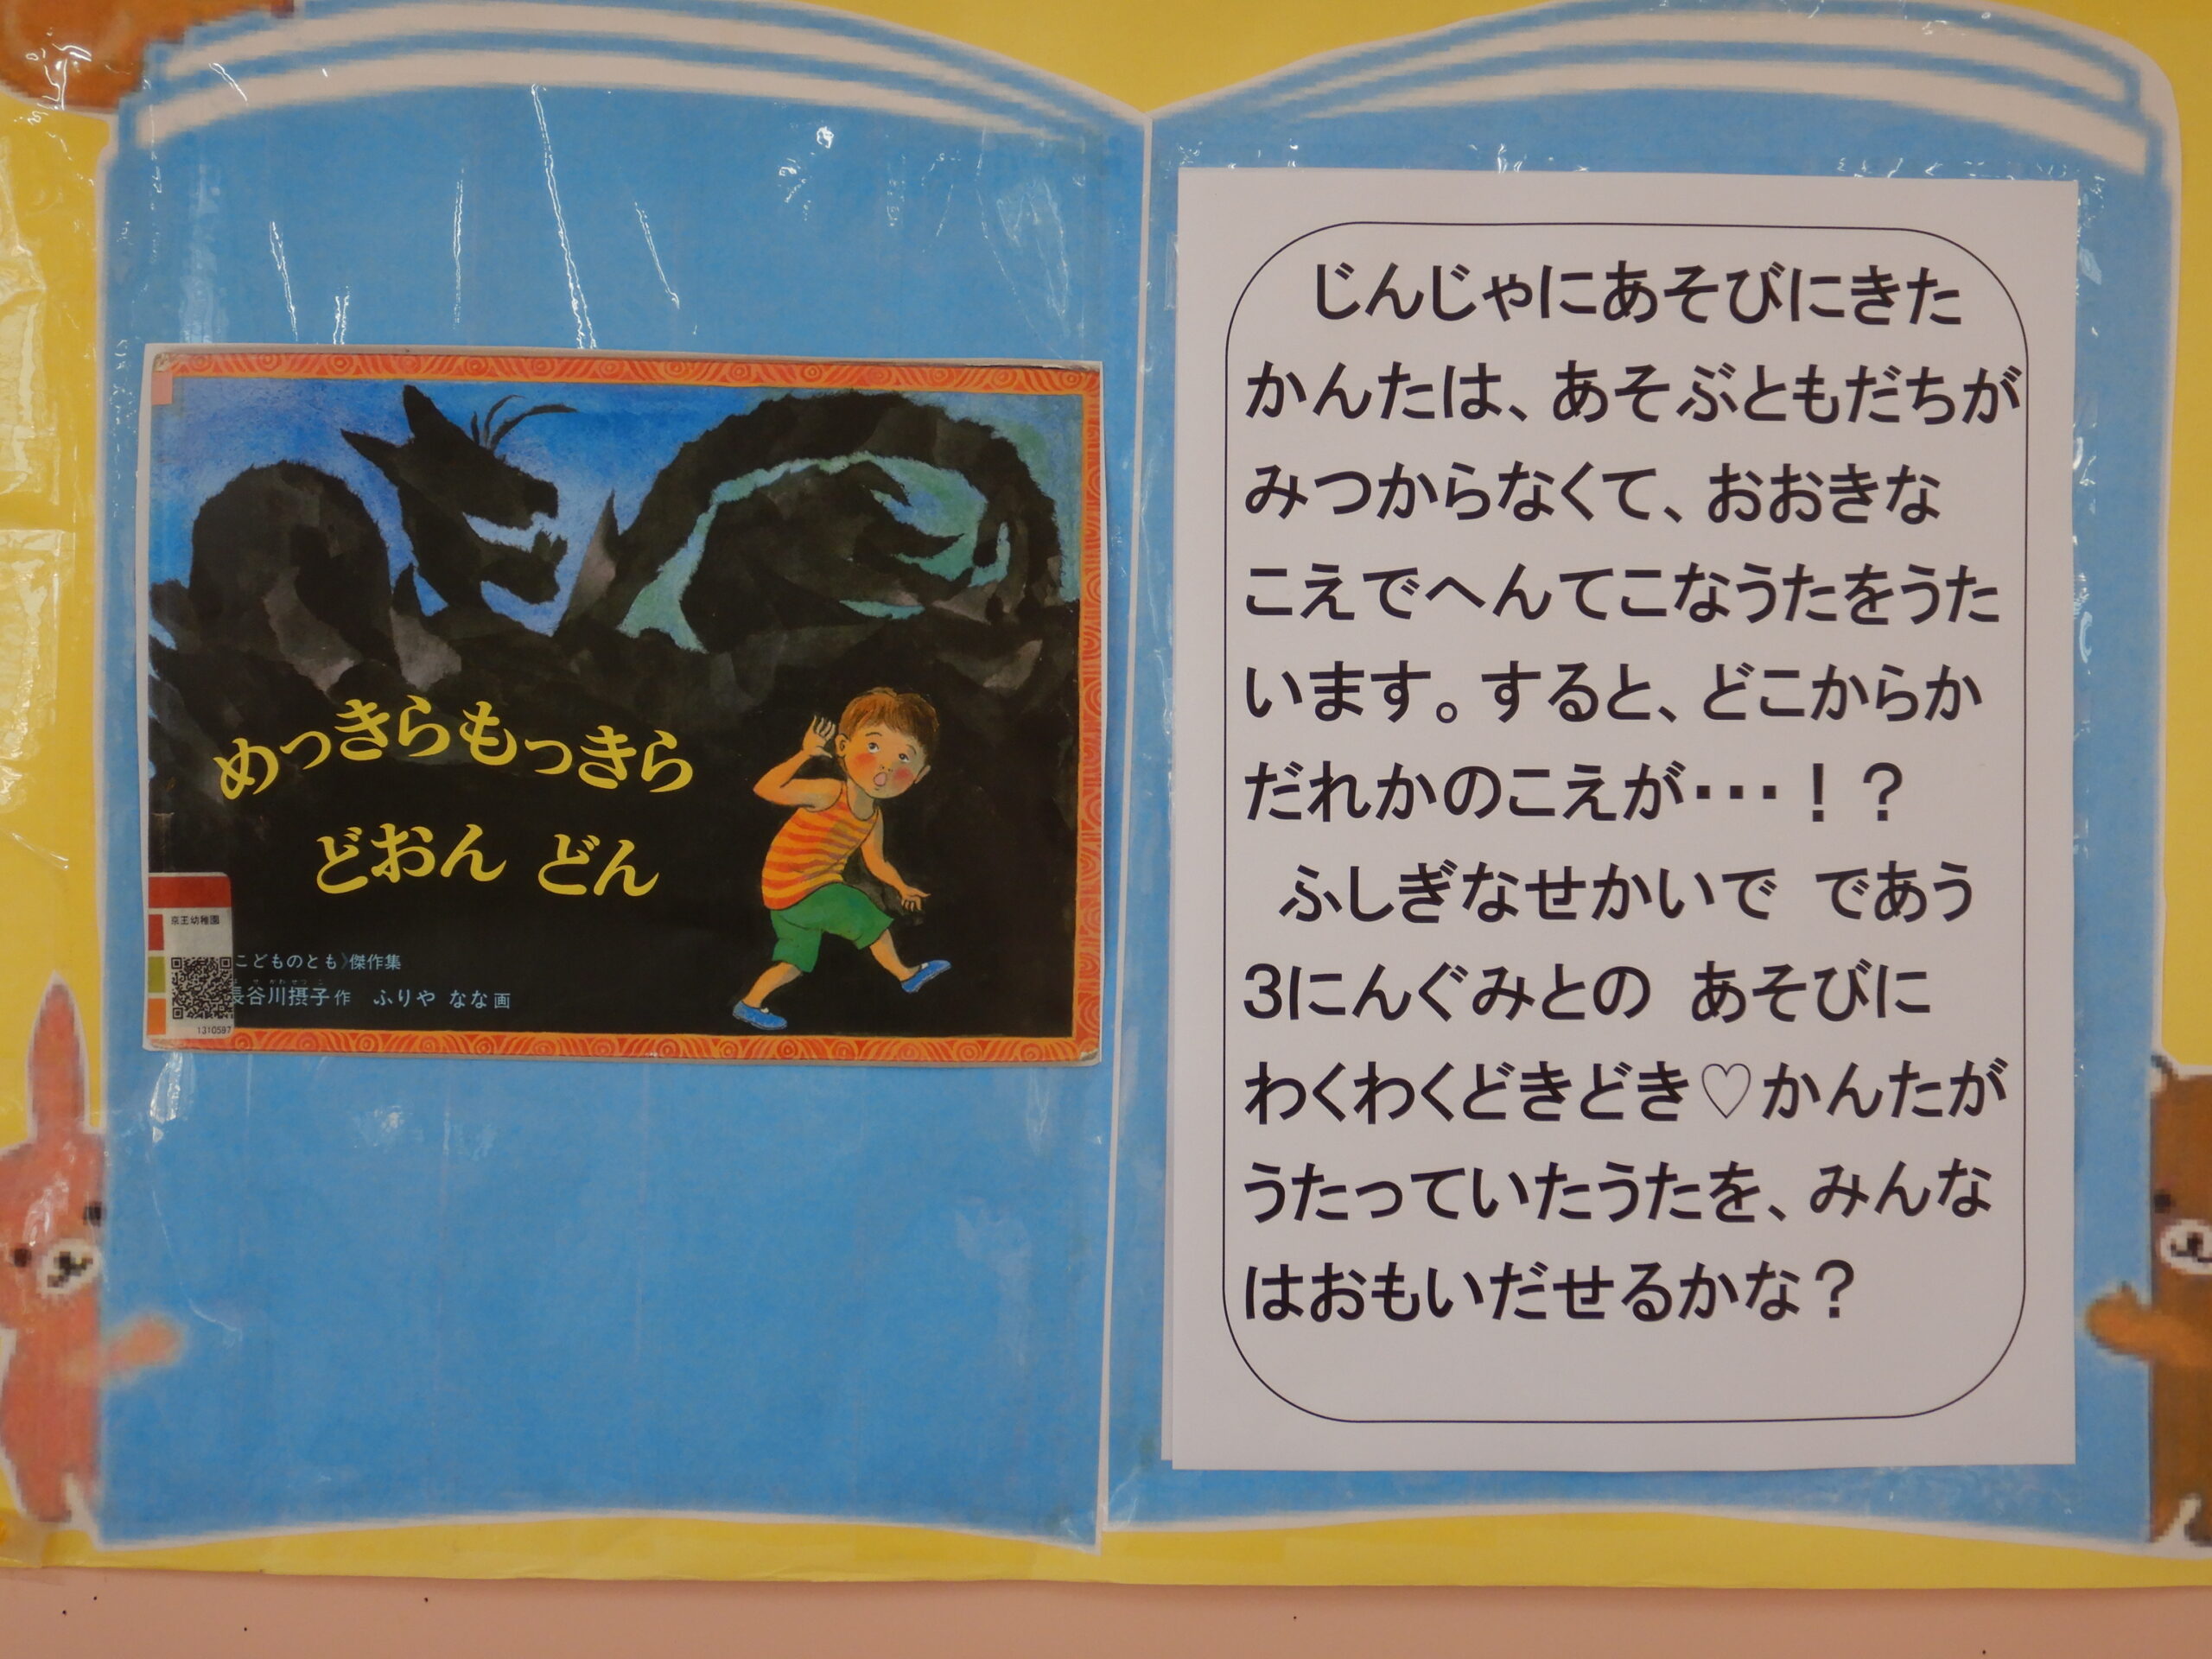 めっきらもっきら
どおん どん
京王幼稚園
こどものとも〉傑作集
長谷川摂子作 ふりや なな画
1310587
じんじゃにあそびにきた
かんたは、あそぶともだちが
みつからなくて、おおきな
こえでへんてこなうたをうた
います。すると、どこからか
だれかのこえが・・・！？
ふしぎなせかいで であう
3にんぐみとの あそびに
わくわくどきどき♡かんたが
うたっていたうたを、みんな
はおもいだせるかな？